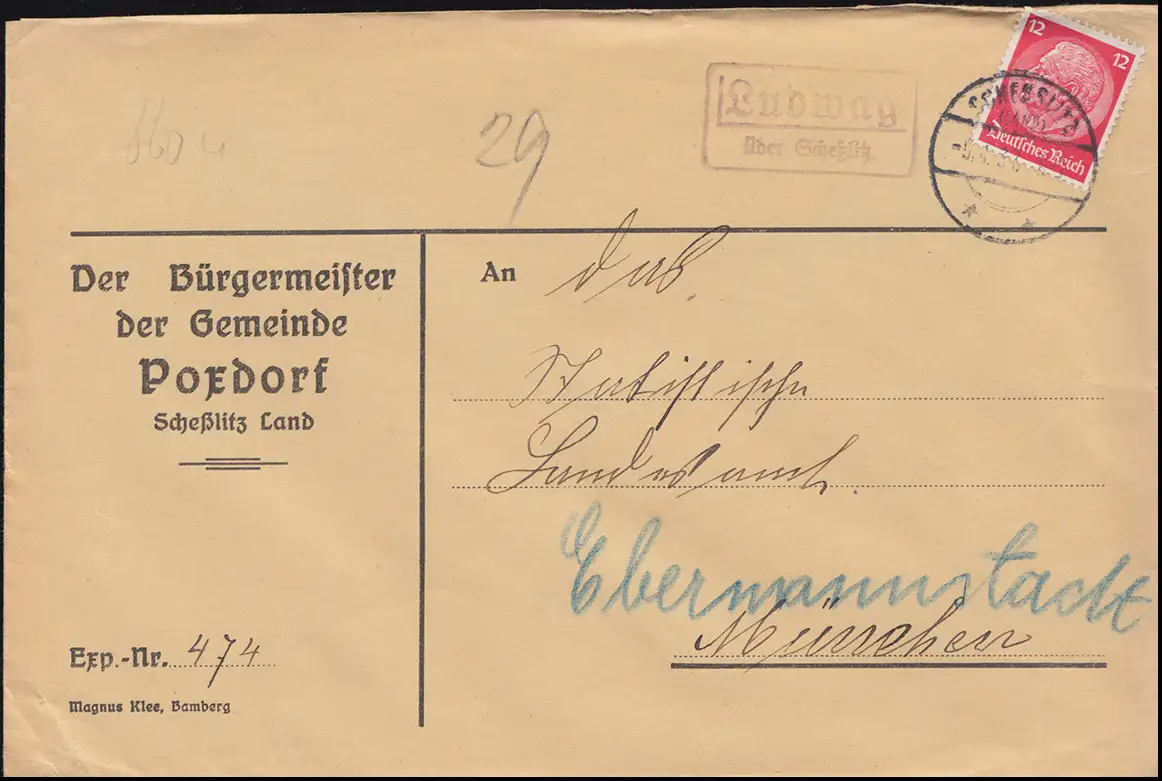 29
Ludwag
über Scheßlitz
12 12
Deutsches Reich
SCHESSLITZ
Der Bürgermeister
der Gemeinde
Poxdorf
Scheßlitz Land
An das
Statistische
Landesamt.
Ebermannstadt
München
Exp.-Nr. 474
Magnus Klee, Bamberg